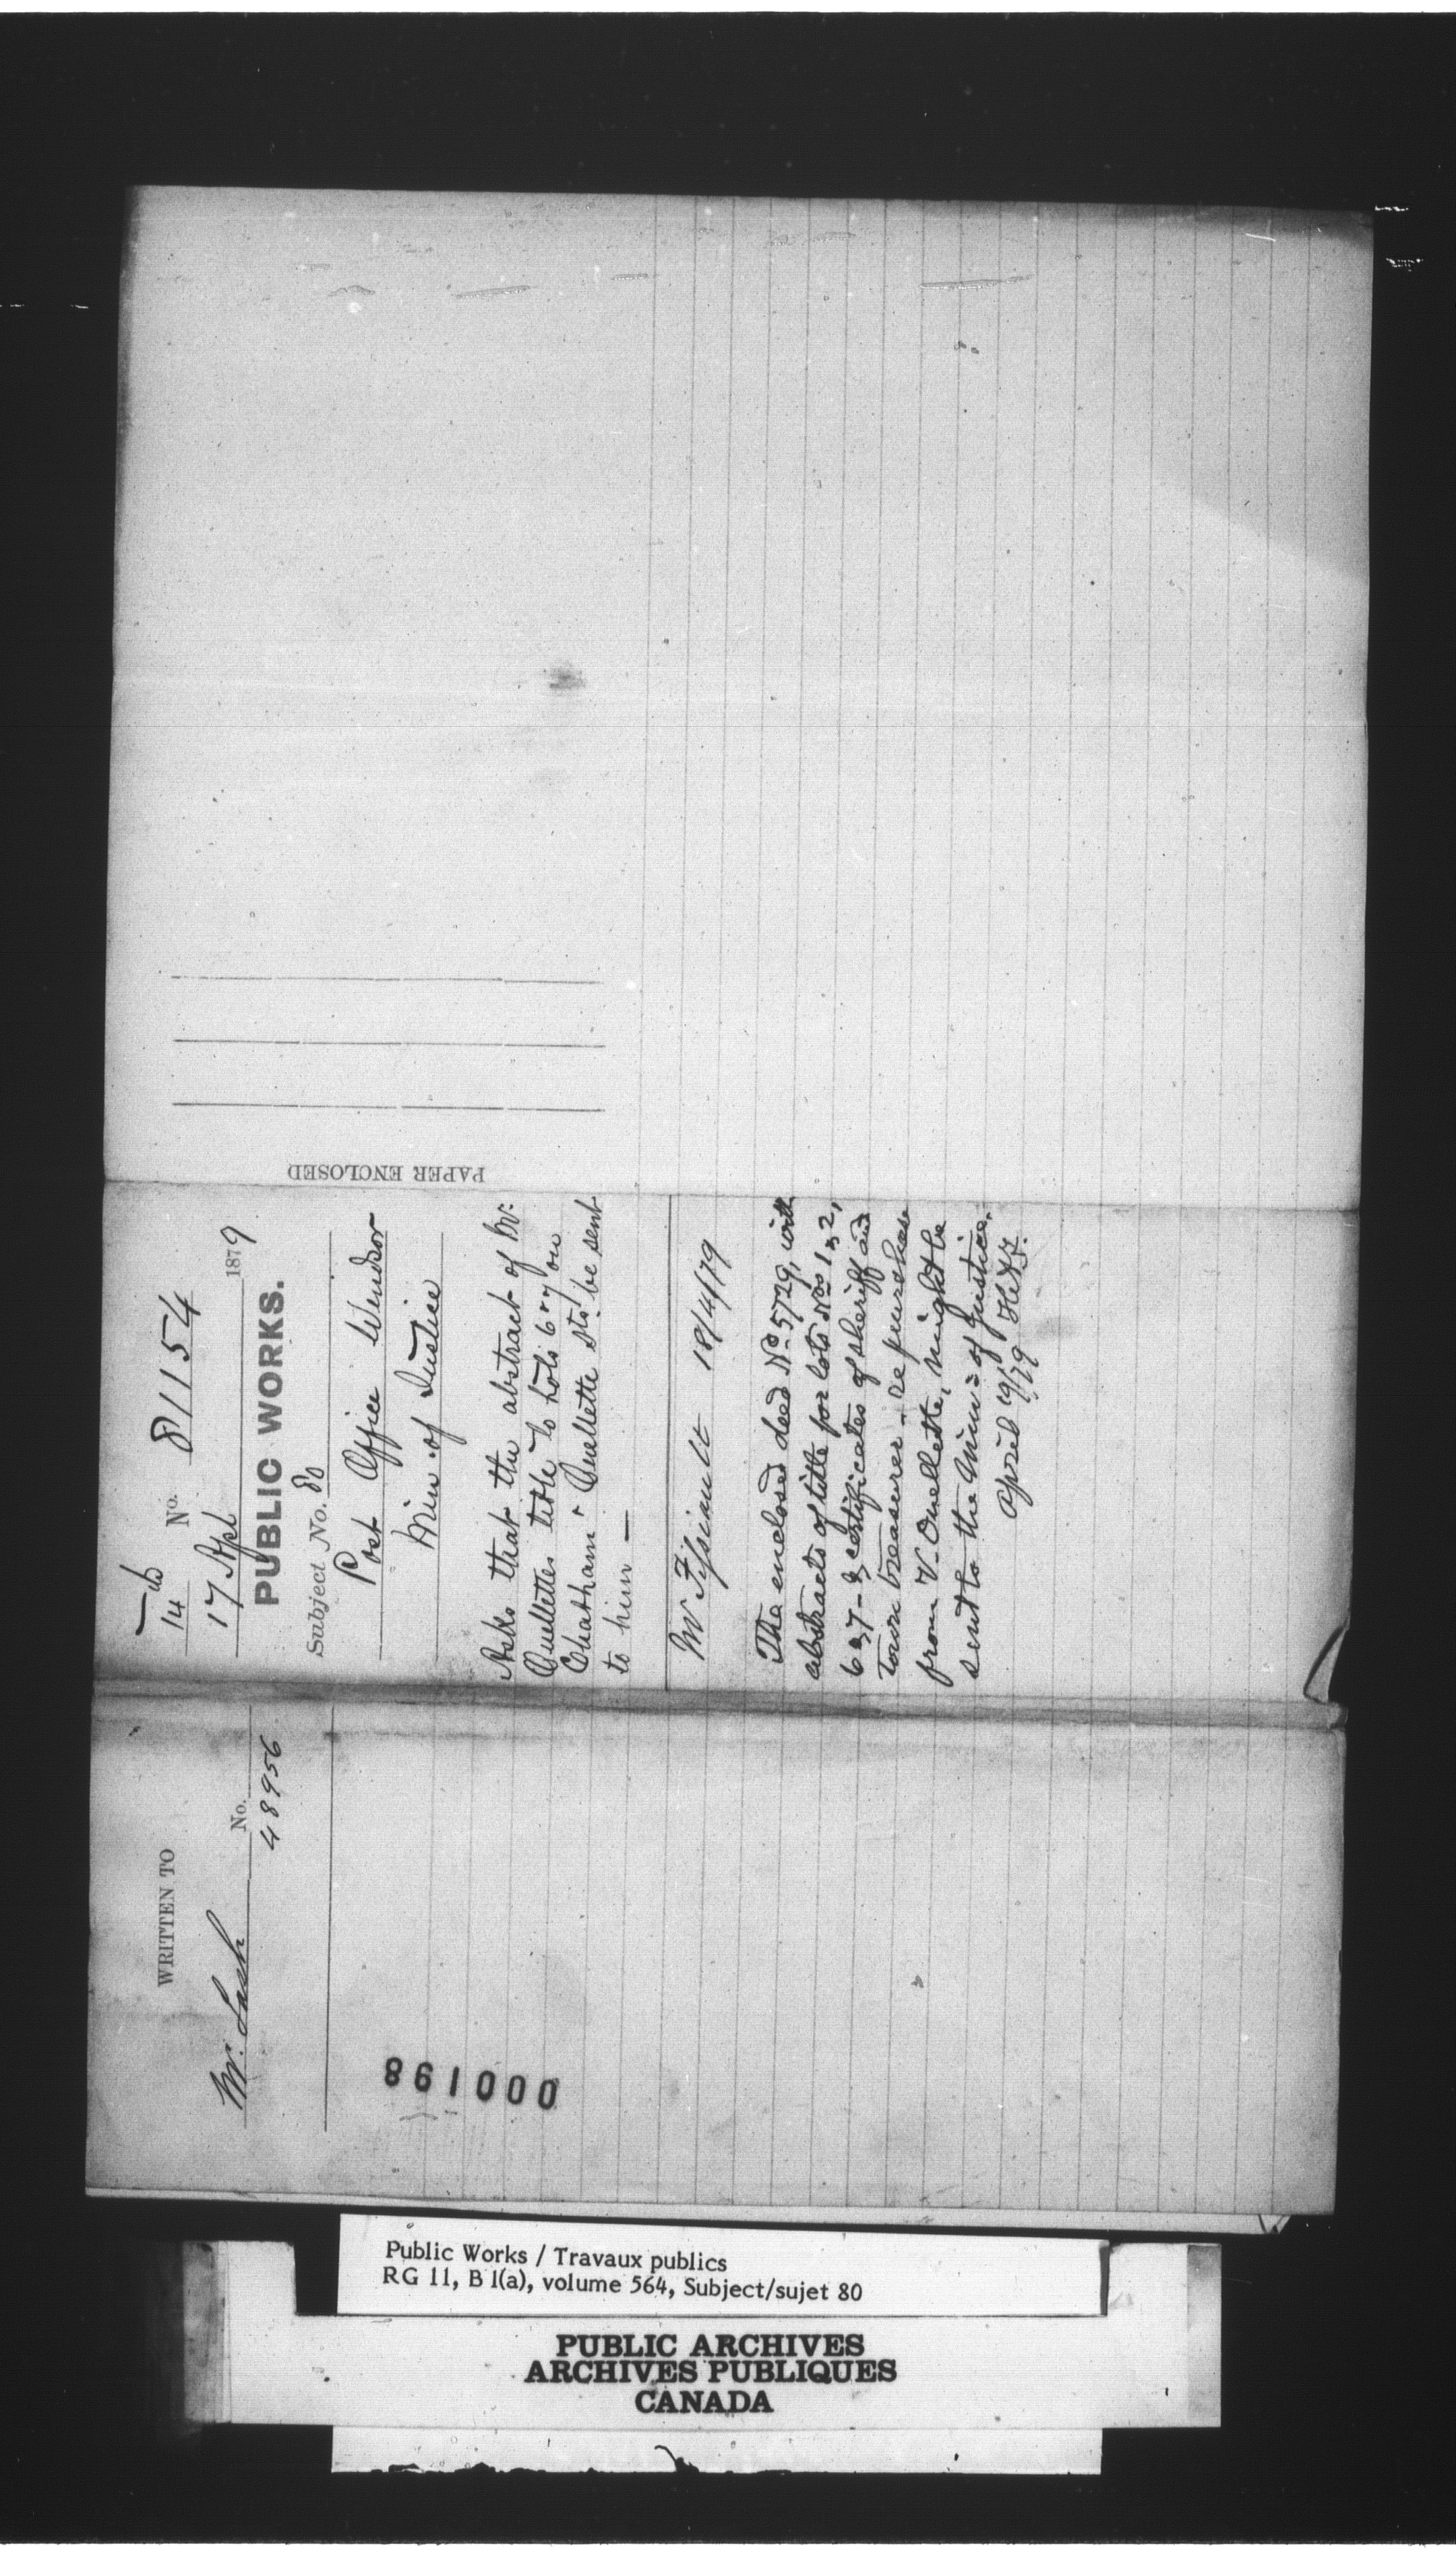 14
No. 81154
17 Apl 1879
PUBLIC WORKS.
Subject No. 80
Post Office Windsor
Min. of Justice
Asks that the abstract of Mr.
Ouellettes title to hots 6 & 7 on
Chatham & Ouellette sts. be sent
to him —
Mr Fissiault 18/4/79
The enclosed deed No. 5729, with
abstracts of title for lots Nos 1 & 2,
6 & 7 - & certificates of sheriff and
Town treasurer - re purchase
from V. Ouellette, might be
sent to the Min= of Justice.
April 19/79
PAPER ENCLOSED
WRITTEN TO
No.
Mr. Lash 48956
000198
Public Works / Travaux publics
RG 11, B 1(a), volume 564, Subject/sujet 80
PUBLIC ARCHIVES
ARCHIVES PUBLIQUES
CANADA